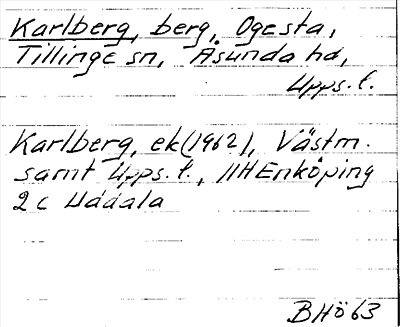 Karlberg, berg, Ogesta,
Tillinge sn, Åsunda hd,
Upps. l.
Karlberg, ek (1962), Västm.
samt Upps. l., 11H Enköping
2 c Uddala
BHö 63